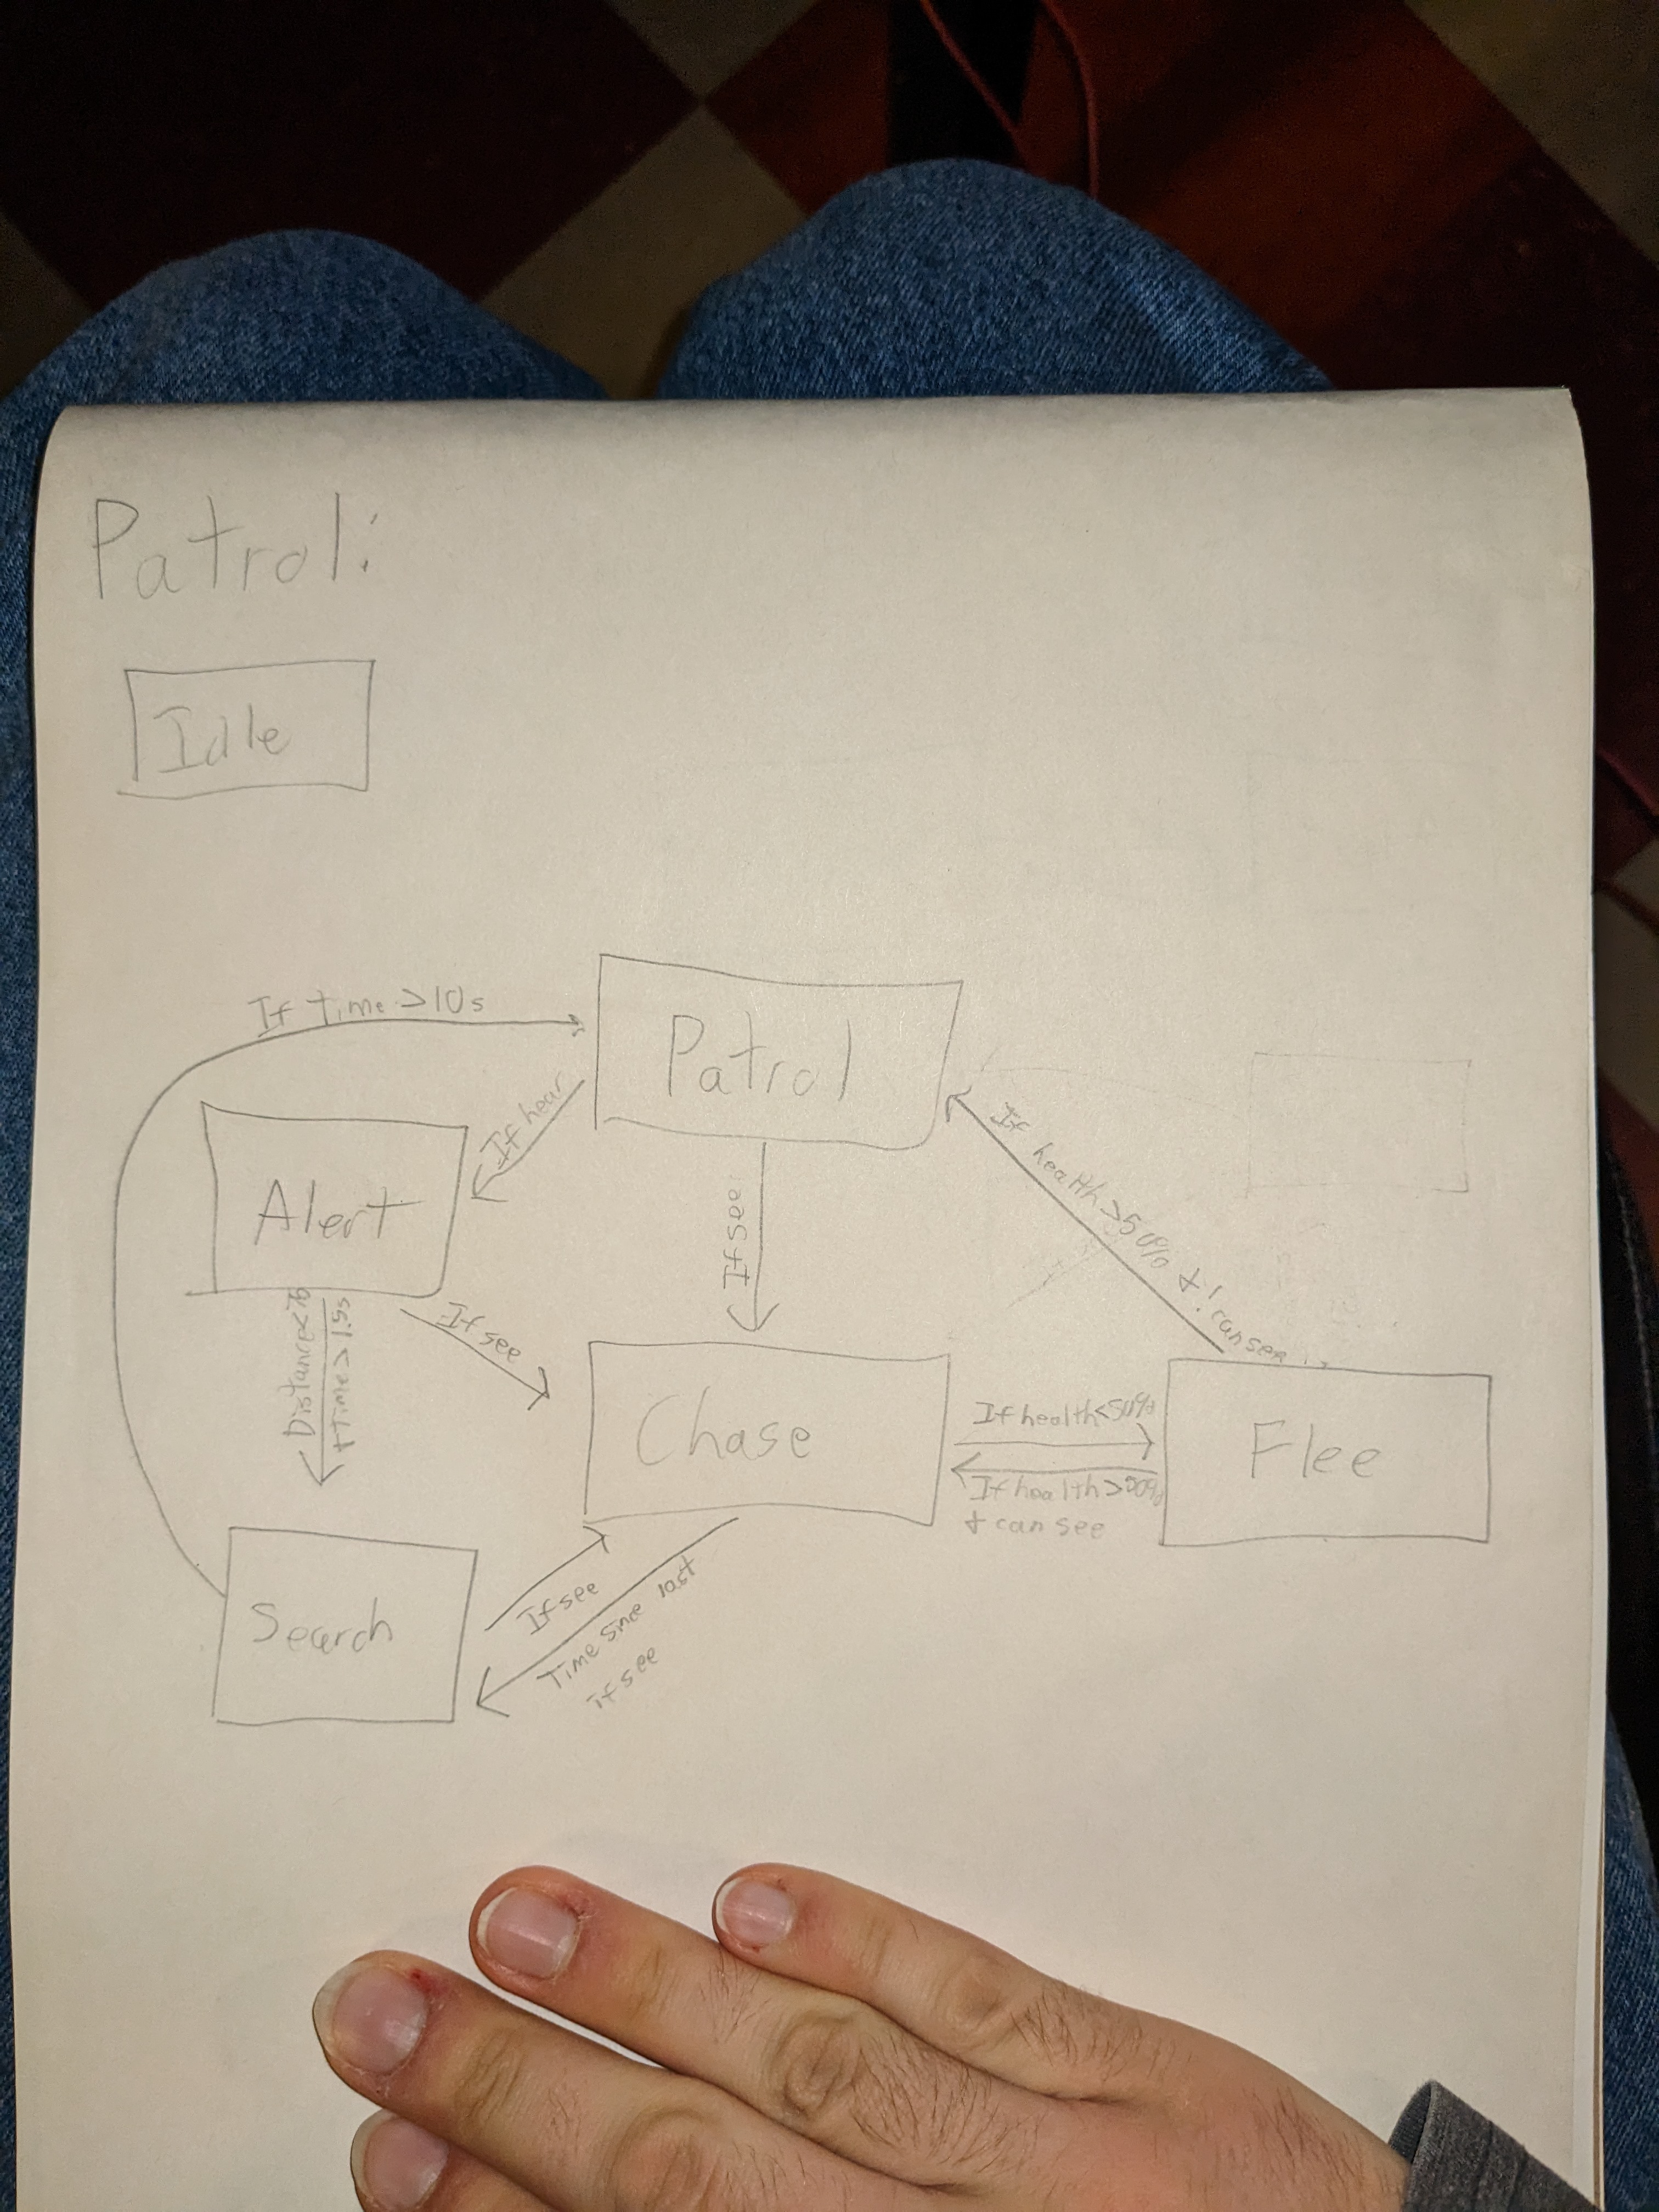 Patrol:
Idle
If time >10s
Patrol
If hear
Alert
If see
If health >50% + !can see
Distance<
+time> 1.5s
If see
Chase
If health<50%
If health>50%
+ can see
Flee
Search
If see
Time since last
if see